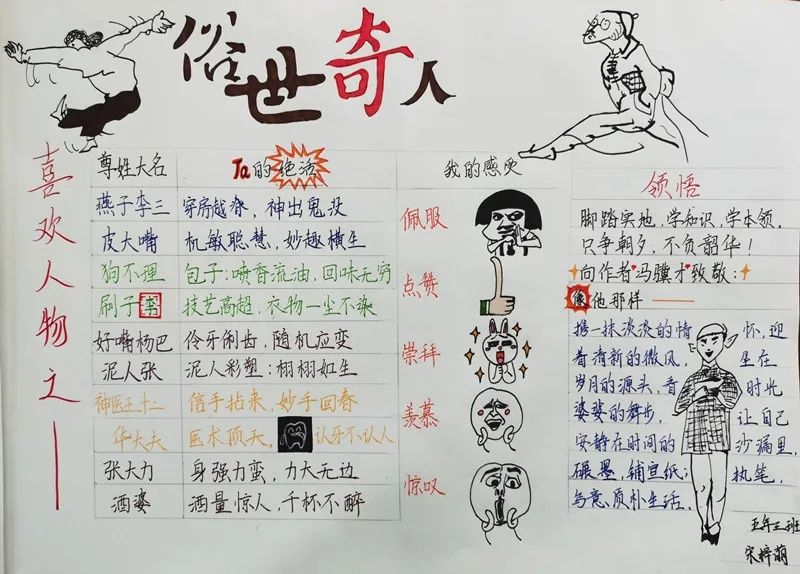 俗世奇人
喜欢人物之一
尊姓大名 Ta的绝活
燕子李三 穿房越脊，神出鬼没
皮大嘴 机敏聪慧，妙趣横生
狗不理 包子：喷香流油，回味无穷
刷子李 技艺高超，衣物一尘不染
好嘴杨巴 伶牙俐齿，随机应变
泥人张 泥人彩塑：栩栩如生
神医王十二 信手拈来，妙手回春
华大夫 医术顶天，认牙不认人
张大力 身强力蛮，力大无边
酒婆 酒量惊人，千杯不醉
我的感受
佩服
点赞
崇拜
羡慕
惊叹
领悟
脚踏实地，学知识，学本领，
只争朝夕，不负韶华！
向作者冯骥才致敬：
像他那样——
携一抹淡淡的情怀，迎
着清新的微风，坐在
岁月的源头，看时光
婆娑的舞步，让自己
安静在时间的沙漏里，
碾墨，铺宣纸；执笔，
写意、质朴生活。
五年三班
宋梓萌